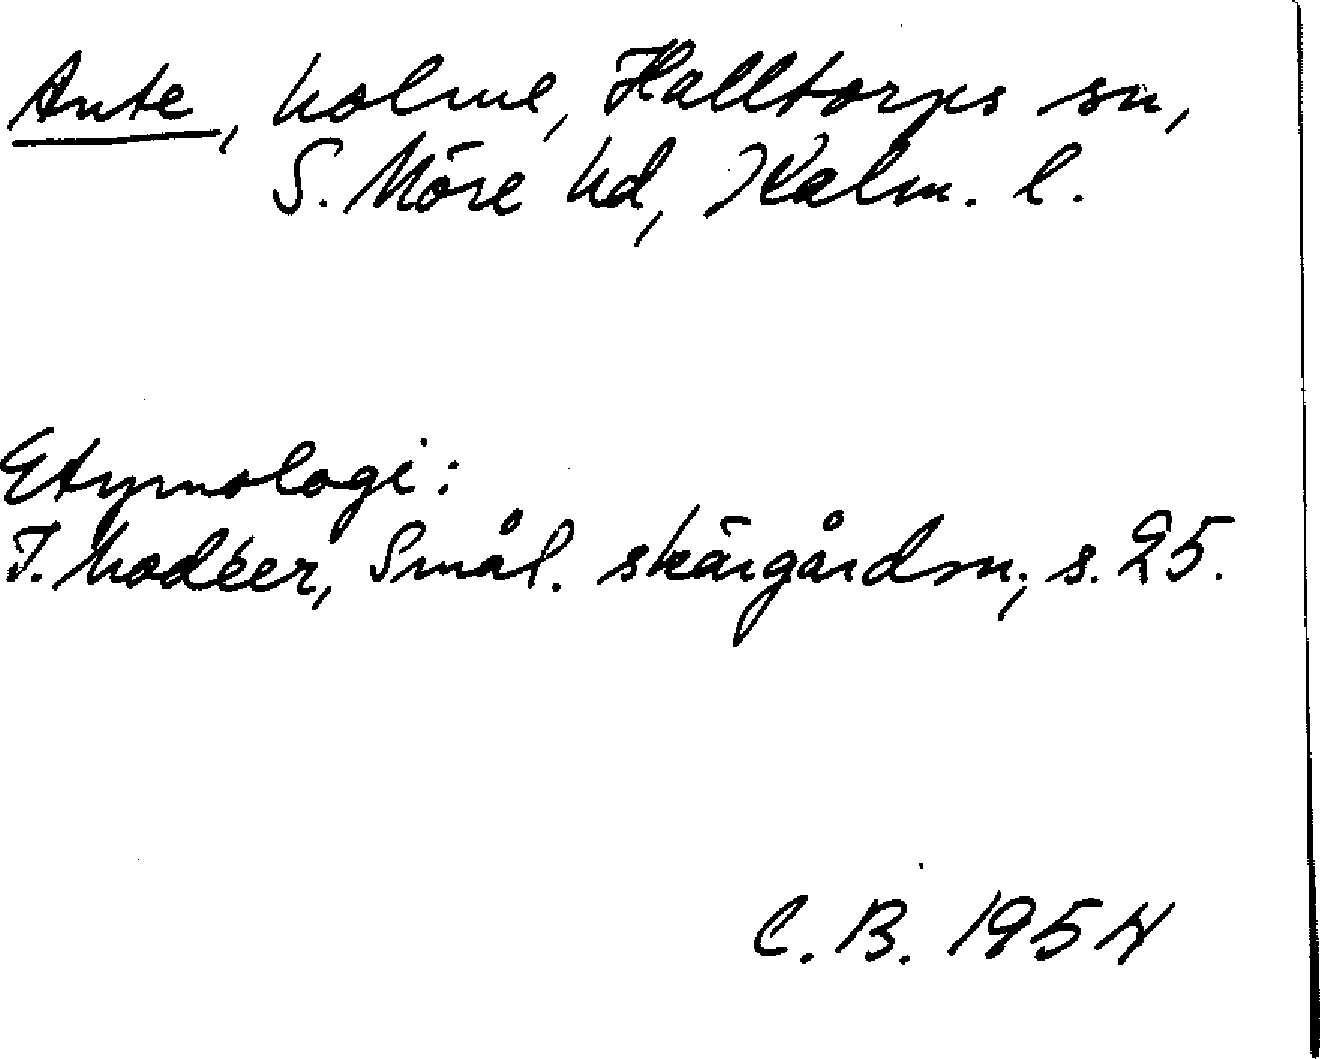 Ante, holme, Halltorps sn,
S. Möre hd, Kalm. l.
Etymologi:
I. Modéer, Smål. skärgårdsn, s. 25.
C. B. 1954